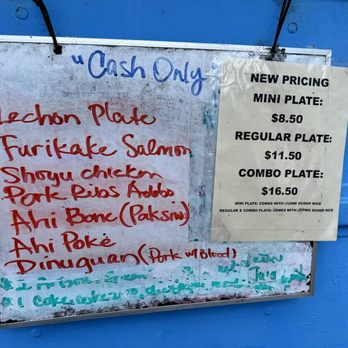 "Cash Only"
Lechon Plate
Furikake Salmon
Shoyu chicken
Pork Ribs Adobo
Ahi Bone (Paksiw)
Ahi Poke
Dinuguan (Pork w/ Blood)
NEW PRICING
MINI PLATE:
$8.50
REGULAR PLATE:
$11.50
COMBO PLATE:
$16.50
MINI PLATE: COMES WITH (1)ONE SCOOP RICE
REGULAR & COMBO PLATE: COMES WITH (2)TWO SCOOP RICE